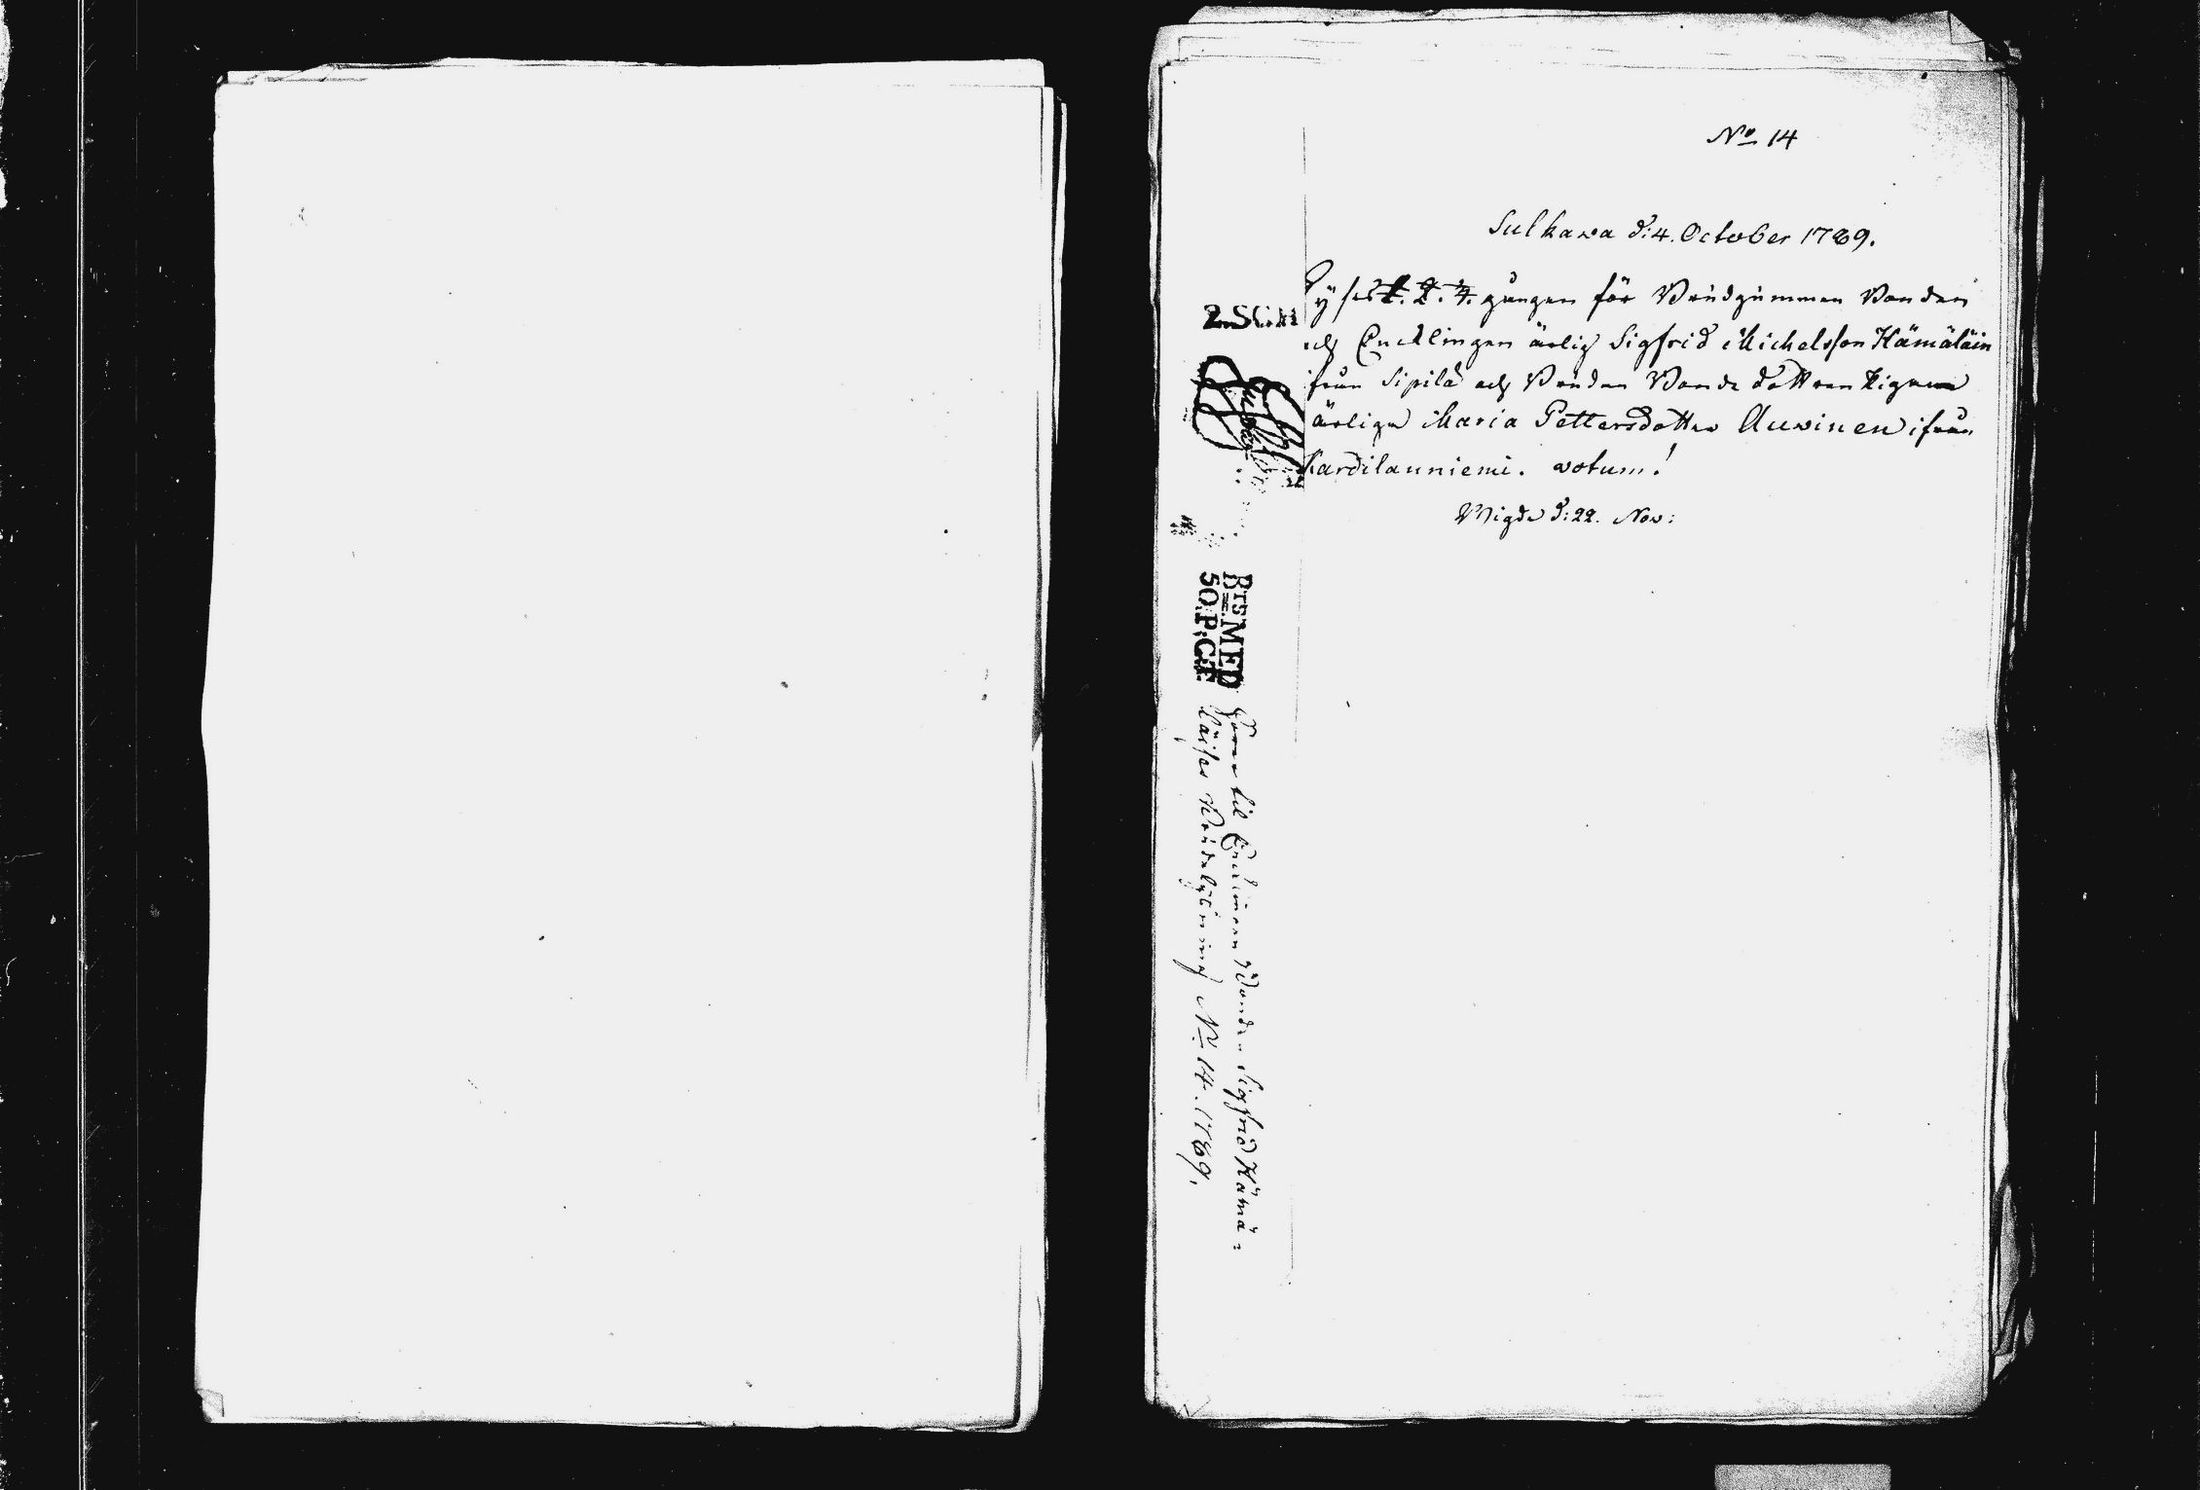 No 14
Sulkawa d: 4. October 1789.
Lyses 1. 2. 3. gången för Brudgummen Bonden
och Encklingen ärlig Sigfrid Michelsson Hämäläin
ifrån Sipilä och Bruden Bonde dottren Pigan
ärliga Maria Pettersdotter Auwinen ifrån
Kardilanniemi. votum!
Wigde d: 22. Nov:
2 SK
BTS MED
50 P: CT
til Encklingen Bonden Sigfrid Hämä=
läises Brudelysning No 14. 1789.